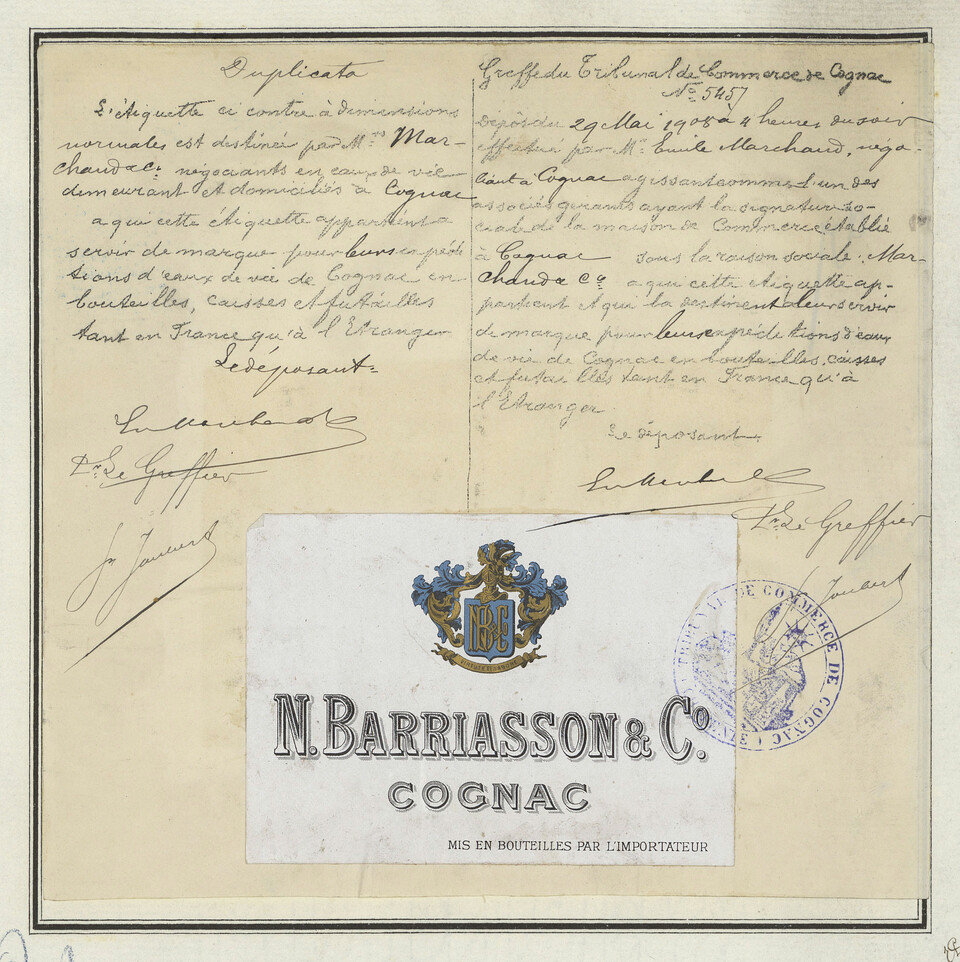 Duplicata
L'étiquette ci contre à dimensions
normales est destinée par Mrs Mar-
chand & Co. négociants en eaux de vie
demeurant et domiciliés à Cognac
a qui cette étiquette appartient à
servir de marque pour leurs expédi-
tions d'eaux de vie de Cognac en
bouteilles, caisses et futailles
tant en France qu'à l'Etranger
Le déposant
Pr Le Greffier
Greffe du Tribunal de Commerce de Cognac
No 5457
Dépôt du 29 Mai 1908 à 4 heures du soir
effectué par Mr Emile Marchand, négo-
ciant à Cognac agissant comme l'un des
associés gérants ayant la signature so-
ciale de la maison de Commerce établie
à Cognac sous la raison sociale: Mar-
chand & Co a qui cette étiquette ap-
partient et qui la destinent à leur servir
de marque pour leurs expéditions d'eaux
de vie de Cognac en bouteilles, caisses
et futailles tant en France qu'à
l'Etranger
Le déposant
Pr Le Greffier
TRIBUNAL DE COMMERCE DE COGNAC
NB&Co
N. BARRIASSON & Co.
COGNAC
MIS EN BOUTEILLES PAR L'IMPORTATEUR